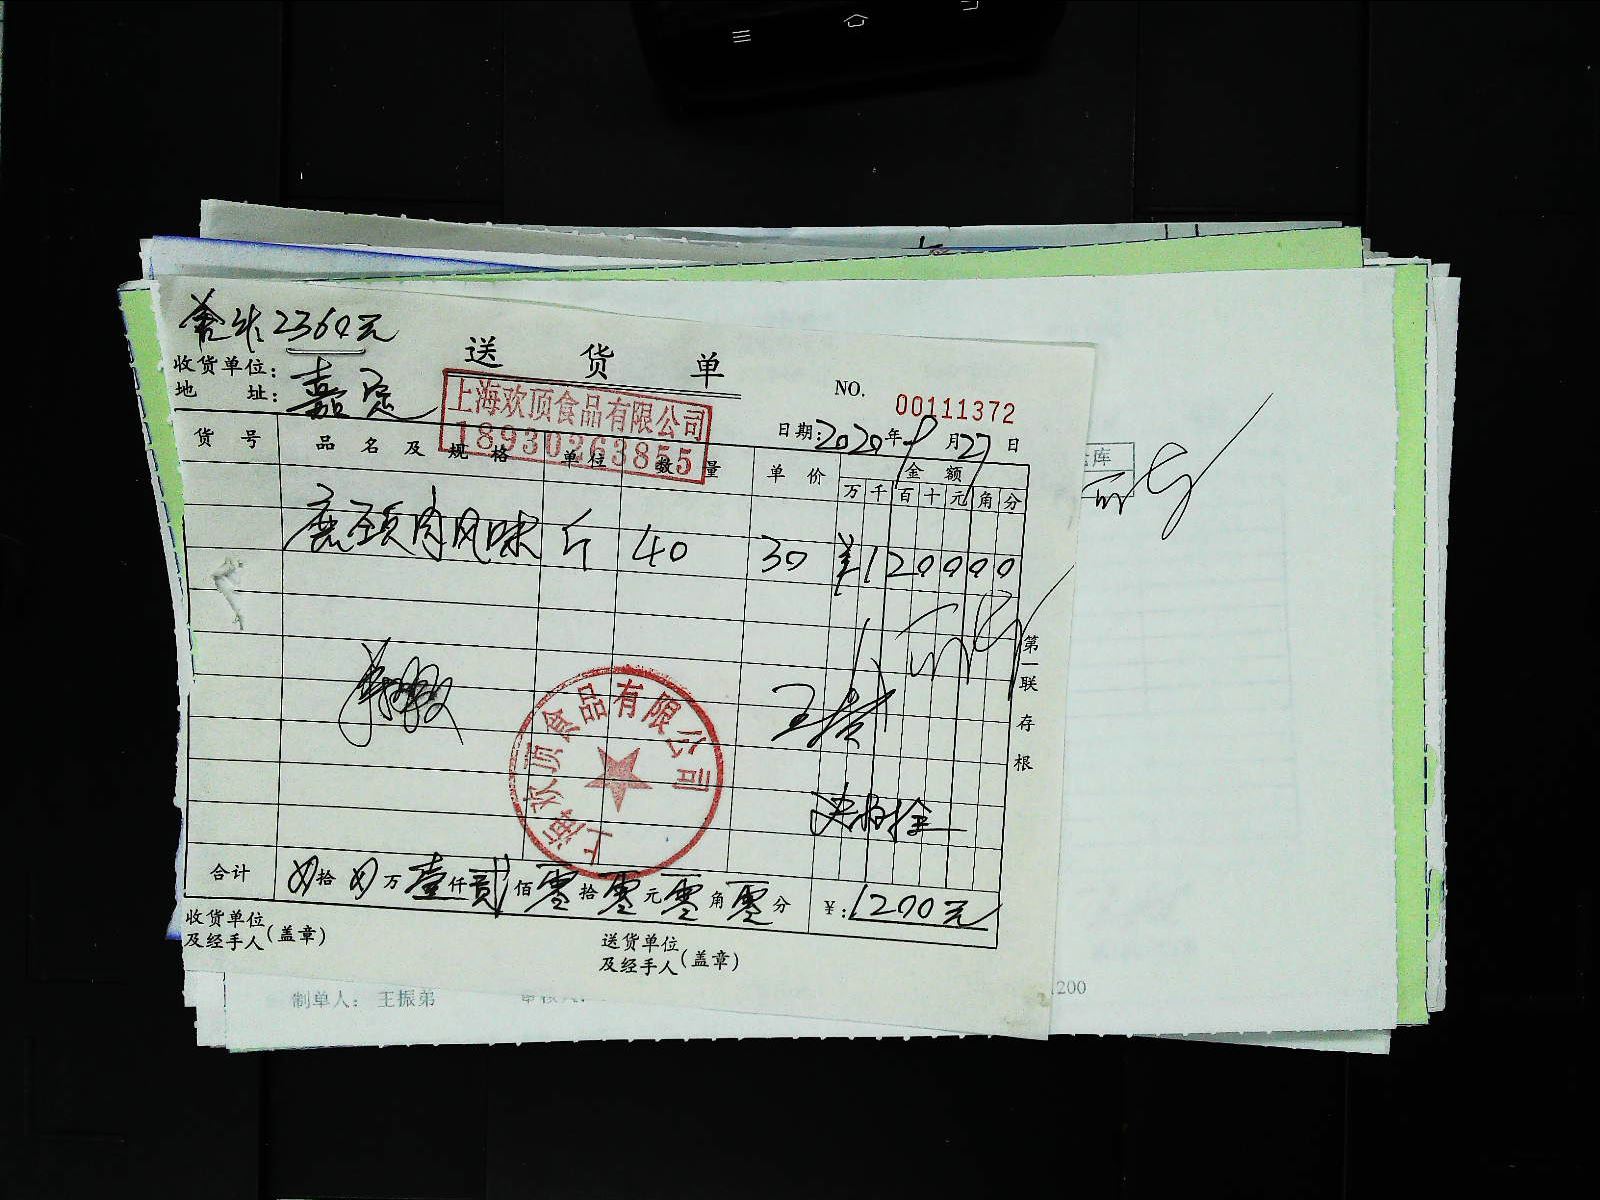 2360元
送货单
收货单位:
地址:
嘉
上海欢顶食品有限公司
18930263855
NO. 00111372
日期:2020年9月27日
货号 品名及规格 单位 数量 单价 金额
万 千 百 十 元 角 分
鹿颈肉风味 斤 40 30 ¥120000
仓库
王
上海欢顶食品有限公司
第一联存根
合计 拾 万 壹仟贰佰零拾零元零角零分 ¥:1200元
收货单位
及经手人(盖章)
送货单位
及经手人(盖章)
制单人: 王振弟
1200